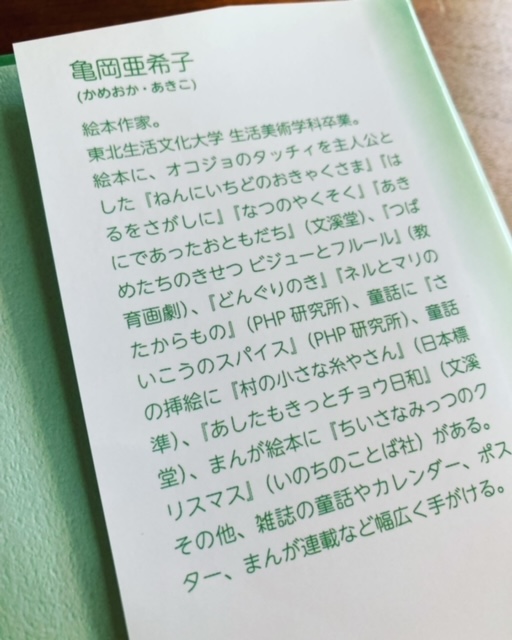 亀岡亜希子
(かめおか・あきこ)
絵本作家。
東北生活文化大学 生活美術学科卒業。
絵本に、オコジョのタッチィを主人公と
した『ねんにいちどのおきゃくさま』『は
るをさがしに』『なつのやくそく』『あき
にであったおともだち』(文溪堂)、『つば
めたちのきせつ ビジューとフルール』(教
育画劇)、『どんぐりのき』『ネルとマリの
たからもの』(PHP 研究所)、童話に『さ
いこうのスパイス』(PHP 研究所)、童話
の挿絵に『村の小さな糸やさん』(日本標
準)、『あしたもきっとチョウ日和』(文溪
堂)、まんが絵本に『ちいさなみっつのク
リスマス』(いのちのことば社)がある。
その他、雑誌の童話やカレンダー、ポス
ター、まんが連載など幅広く手がける。